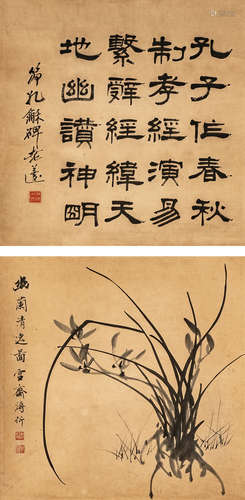 孔子作春秋
制孝經演易
繫辭經緯天
地幽讚神明
節孔龢碑
幽蘭清逸圖雪齋溥伒